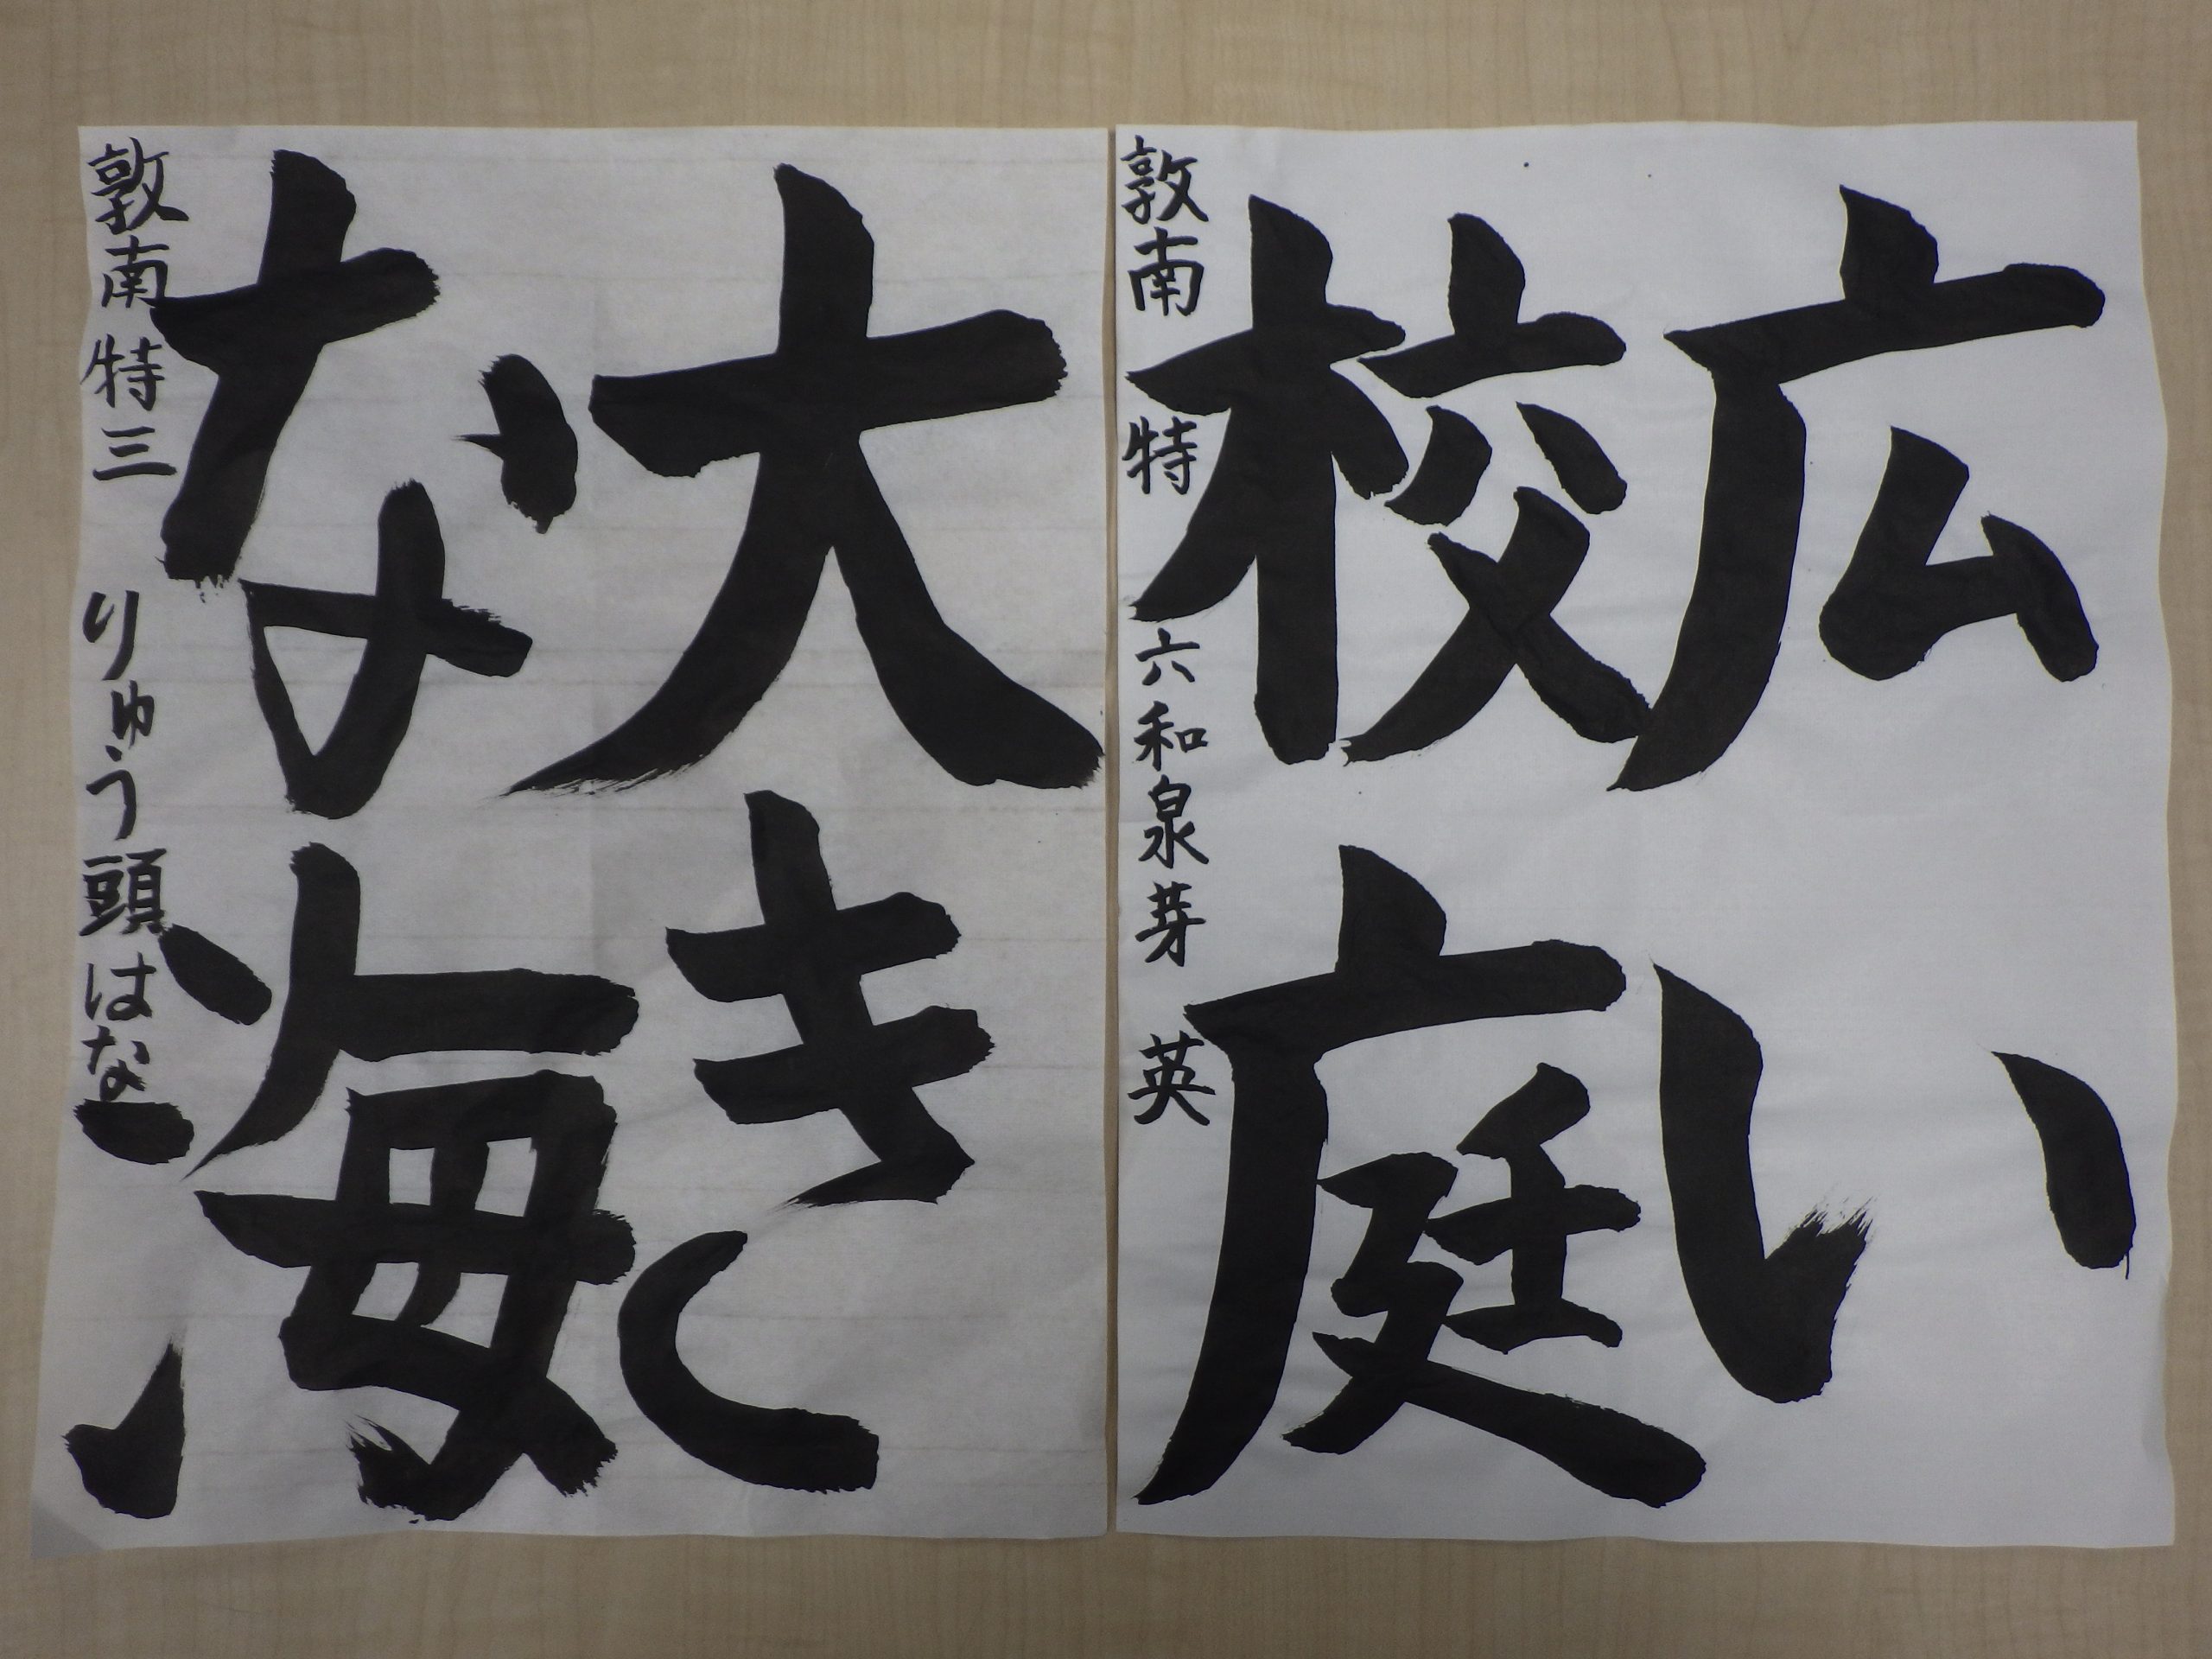 広い
校庭
敦南 特 六 和泉芽英
大き
な海
敦南 特三 りゅう頭はな